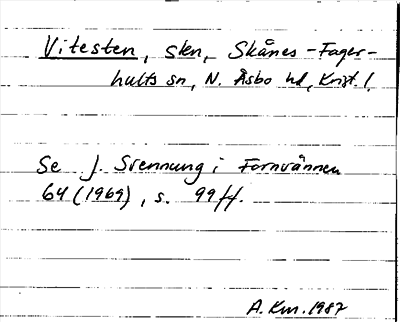 Vitesten, skn, Skånes-Fager-
hults sn, N. Åsbo hd, Krist. l.
Se J. Svennung i Fornvännen
64 (1969), s. 99ff.
A. Km. 1987